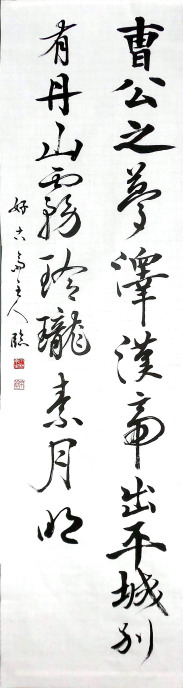 曹公之夢澤漢帝出平城別
有丹山霧玲瓏素月明
好古齋主人臨